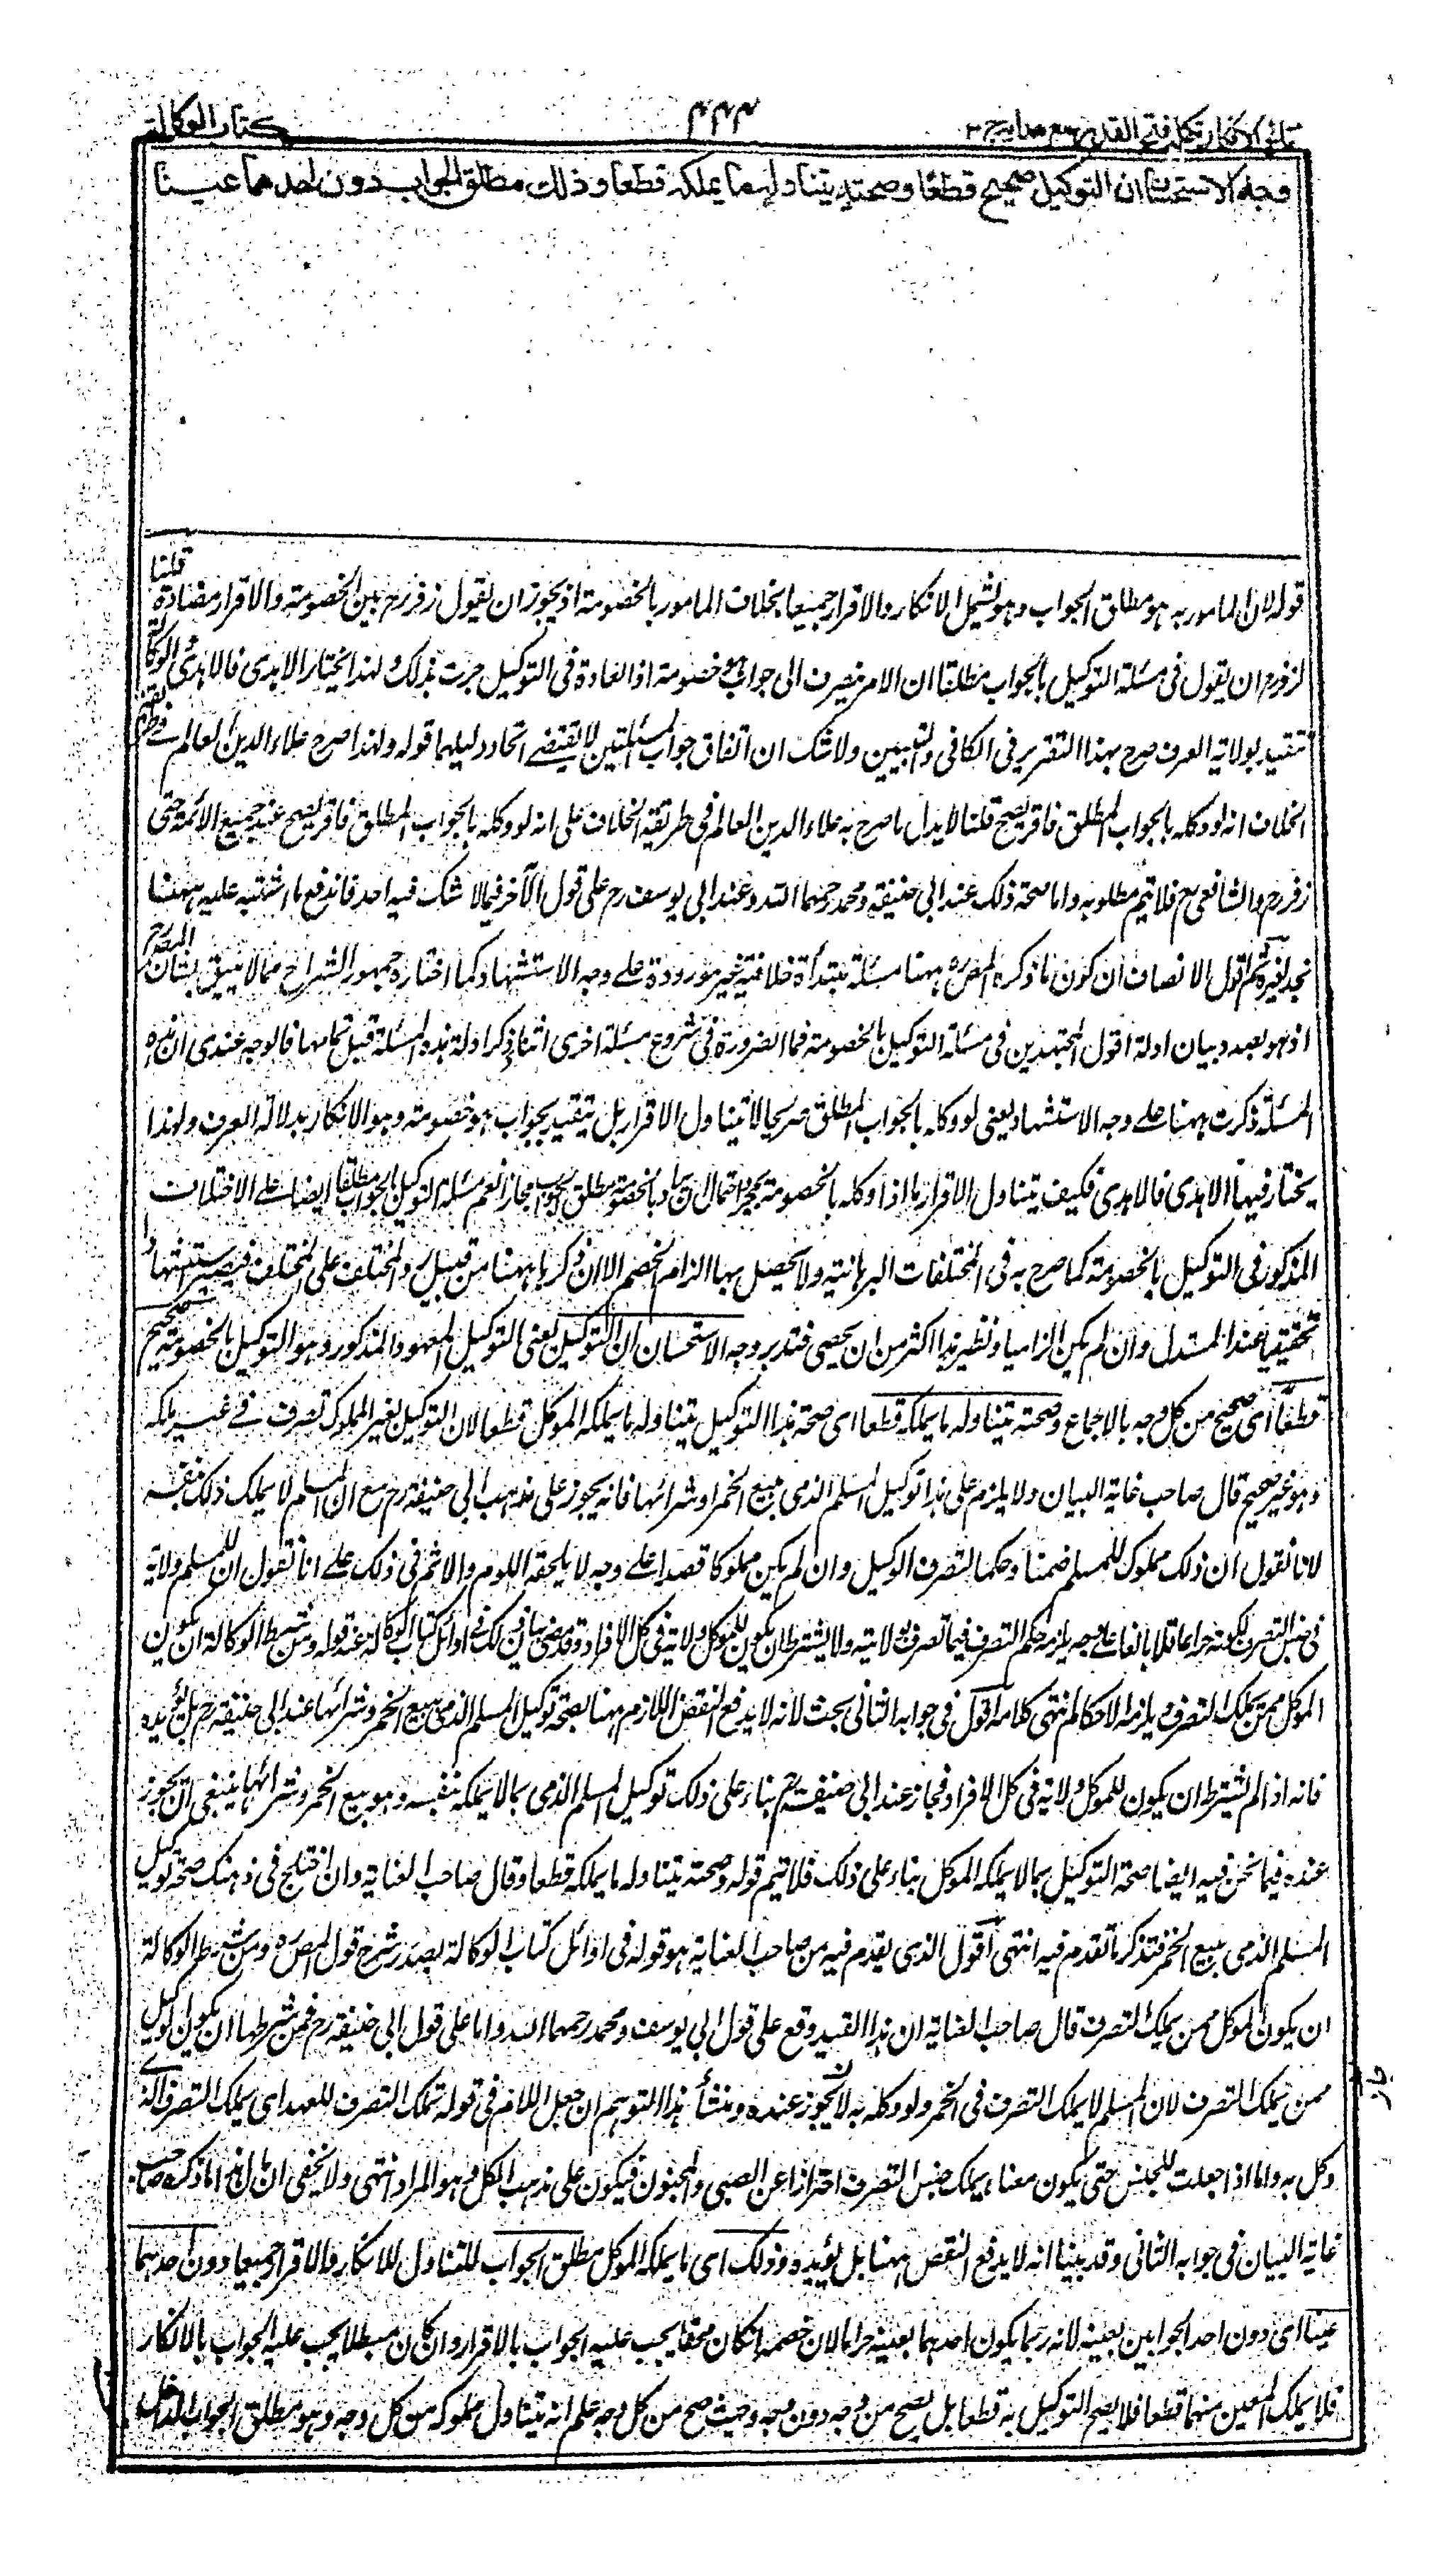 نتائج الافکار تکملہ فتح القدیر مع ہدایہ ج ٣
٤٤٤
کتاب الوکالة
وجه الاستحسان ان التوكيل صحيح قطعا وصحته بتناوله ما يملكه قطعا وذلك مطلق الجواب دون احدهما عينا
قوله لان المامور به هو مطلق الجواب وهو يشمل الانكار والاقرار جميعا بخلاف المامور بالخصومة اذ يجوز ان يقول زفر رح بين الخصومة والاقرار مضادة قلنا
لزفر رح ان يقول فى مسئلة التوكيل بالجواب مطلقا ان الامر ينصرف الى جواب هو خصومة اذ العادة فى التوكيل جرت بذلك ولهذا يختار الاهدى فالاهدى الوكالة
تتقيد بدلالة العرف صرح بهذا التقرير فى الكافى والتبيين ولا شك ان اتفاق جواب المسئلتين لا يقتضى اتحاد دليلهما قوله ولهذا صرح علاء الدين العالم فى
الخلاف انه لو وكله بالجواب المطلق فاقر يصح قلنا لا يدل ما صرح به علاء الدين العالم فى طريقة الخلاف على انه لو وكله بالجواب المطلق فاقر يصح عند جميع الائمة حتى
زفر رح والشافعى رح فلا يتم مطلوبه واما صحة ذلك عند ابى حنيفة ومحمد رحمهما الله وعند ابى يوسف رح على قول الآخر فمما لا شك فيه احد فاندفع ما اشتبه عليه ههنا
ثم اقول الانصاف ان كون ما ذكره المص ره ههنا مسئلة مبتدأة خلافية غير موردة على وجه الاستشهاد كما اختاره جمهور الشراح مما لا يليق بشان المصرح
اذ هو بصدد بيان ادلة اقوال المجتهدين فى مسئلة التوكيل بالخصومة فما الضرورة فى شروع مسئلة اخرى اثناء ذكر ادلة هذه المسئلة قبل تمامها فالوجه عندى ان هذه
المسئلة ذكرت ههنا على وجه الاستشهاد يعنى لو وكله بالجواب المطلق صريحا لا يتناول الاقرار بل يتقيد بجواب هو خصومة وهو الانكار بدلالة العرف ولهذا
يختار فيها الاهدى فالاهدى فكيف يتناول الاقرار ما اذا وكله بالخصومة بمجرد احتمال ان يراد بالخصومة مطلق الجواب مجازا نعم مسئلة التوكيل بالجواب مطلقا ايضا على الاختلاف
المذكور فى التوكيل بالخصومة كما صرح به فى المختلفات البرهانية ولا يحصل بها الزام الخصم الا ان ذكرها ههنا من قبيل رد المختلف على المختلف فيصير استشهادا
تحقيقيا عند المستدل وان لم يكن الزاميا ونظير هذا اكثر من ان يحصى فتدبر وجه الاستحسان ان التوكيل يعنى التوكيل المعهود والمذكور وهو التوكيل بالخصومة صحيح
قطعا اى صحيح من كل وجه بالاجماع وصحته بتناوله ما يملكه قطعا اى صحة هذا التوكيل بتناوله ما يملكه الموكل قطعا لان التوكيل بغير المملوك تصرف فى غير ملكه
وهو غير صحيح قال صاحب غاية البيان ولا يلزم على هذا توكيل المسلم الذمى ببيع الخمر او شرائها فانه يجوز على مذهب ابى حنيفة رح مع ان المسلم لا يملك ذلك بنفسه
لانا نقول ان ذلك مملوك للمسلم ضمنا وحكما لتصرف الوكيل وان لم يكن مملوكا قصدا على وجه لا يلحقه اللوم والاثم فى ذلك على انا نقول ان للمسلم ولاية
فى جنس التصرف لكونه حرا عاقلا بالغا على وجه يلزمه حكم التصرف فيما تصرف بولايته ولا يشترط ان يكون للموكل ولاية فى كل الافراد وقد مضى بيان ذلك فى اوائل كتاب الوكالة عند قوله ومن شرط الوكالة ان يكون
الموكل ممن يملك التصرف ويلزمه الاحكام انتهى كلامه اقول فى جوابه الثانى بحث لانه لا يدفع النقض اللازم ههنا بصحة توكيل المسلم الذمى ببيع الخمر وشرائها عند ابى حنيفة رح بل يؤيده
فانه اذا لم يشترط ان يكون للموكل ولاية فى كل الافراد فجاز عند ابى حنيفة رح بناء على ذلك توكيل المسلم الذمى بما لا يملكه بنفسه وهو بيع الخمر وشرائها ينبغى ان يجوز
عنده فيما نحن فيه ايضا صحة التوكيل بما لا يملكه الموكل بناء على ذلك فلا يتم قوله وصحته بتناوله ما يملكه قطعا وقال صاحب العناية وان اختلج فى ذهنك صحة توكيل
المسلم الذمى ببيع الخمر فتذكر ما تقدم فيه انتهى اقول الذى تقدم فيه من صاحب العناية هو قوله فى اوائل كتاب الوكالة بصدد شرح قول المص ره ومن شرط الوكالة
ان يكون الموكل ممن يملك التصرف قال صاحب العناية ان هذا القيد وقع على قول ابى يوسف ومحمد رحمهما الله واما على قول ابى حنيفة رح فمن شرطها ان يكون الوكيل
ممن يملك التصرف لان المسلم لا يملك التصرف فى الخمر ولو وكله به لا يجوز عنده ومنشأ هذا التوهم ان جعل اللام فى قوله يملك التصرف للعهد اى يملك التصرف الذى
وكل به واما اذا جعلت للجنس حتى يكون معناه يملك جنس التصرف احترازا عن الصبى والمجنون فيكون على مذهب الكل وهو المراد انتهى ولا يخفى ان مآل هذا ما ذكره صاحب
غاية البيان فى جوابه الثانى وقد بينا انه لا يدفع النقض ههنا بل يؤيده وذلك اى ما يملكه الموكل مطلق الجواب المتناول للانكار والاقرار جميعا دون احدهما
عينا اى دون احد الجوابين بعينه لانه ربما يكون احدهما بعينه حراما لان خصمه ان كان محقا يجب عليه الجواب بالاقرار وان كان مبطلا يجب عليه الجواب بالانكار
فلا يملك المعين منهما قطعا فلا يصح التوكيل به قطعا بل يصح من وجه دون وجه وحيث صح من كل وجه علم انه يتناول مملوكه من كل وجه وهو مطلق الجواب الداخل